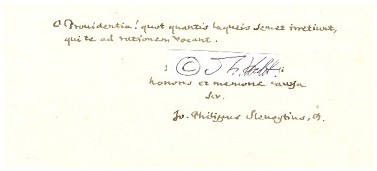 O Providentia! quot quantis laqueis semet irretiunt,
qui te ad rationem vocant.
©
honoris et memoriæ causa
scr.
Jo. Philippus